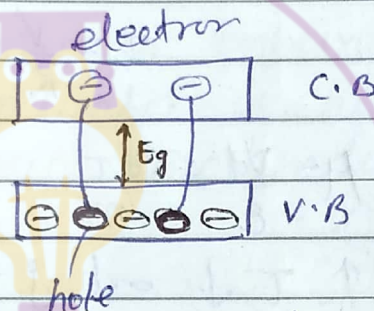 electron
C.B
Eg
V.B
hole